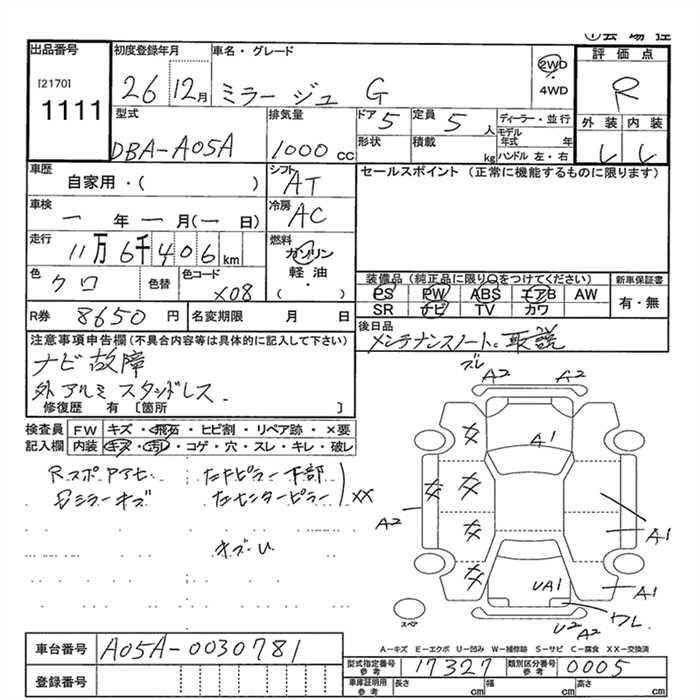 出品番号
[2170]
1111
初度登録年月
26 12月
車名・グレード
ミラージュ G
2WD
・
4WD
評価点
R
外装 内装
型式
DBA-A05A
排気量
1000 cc
ドア 5
形状
定員 5 人
積載 kg
ディーラー・並行
モデル
年式 年
ハンドル 左・右
車歴
自家用・( )
シフト AT
セールスポイント（正常に機能するものに限ります）
車検
一 年 一 月(一 日)
冷房 AC
走行
11万6千406km
燃料
ガソリン
軽油・
( )
色 クロ
色替
色コード X08
装備品（純正品に限り○をつけてください）
PS PW ABS エアB AW
SR ナビ TV カワ
新車保証書
有・無
R券 8650 円
名変期限 月 日
後日品
メンテナンスノート、取説
注意事項申告欄(不具合内容等は具体的に記入して下さい)
ナビ故障
外アルミ スタッドレス
修復歴 有 [箇所 ]
検査員
記入欄
FW キズ・飛石・ヒビ割・リペア跡・×要
内装 キズ・汚レ・コゲ・穴・スレ・キレ・破レ
ミラーキズ
ピラー下部
センターピラー
XX
キズ・U
ズレ
A2 A2
A1
A2
A1
A1
UA1
ワレ
U2 A2
スペア
A-キズ E-エクボ U-凹み W-補修跡 S-サビ C-腐食 XX-交換済
車台番号 A05A-0030781
登録番号
型式指定番号
参考
17327
類別区分番号
参考
0005
車庫証明用
参考
長さ cm
幅 cm
高さ cm